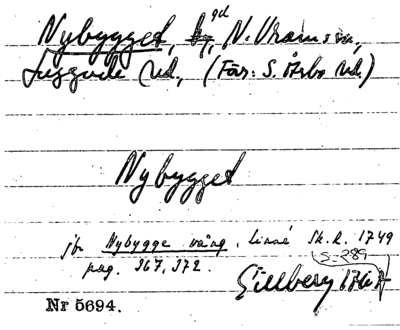 Nybygget, gd, N. Vrams sn,
Luggude hd, (För: S. Åsbo hd)
Nybygget
jfr Nybygge vång, Linné Sk. R. 1749
pag. 367, 372.
S. 289
Gillberg 1767
Nr 5694.